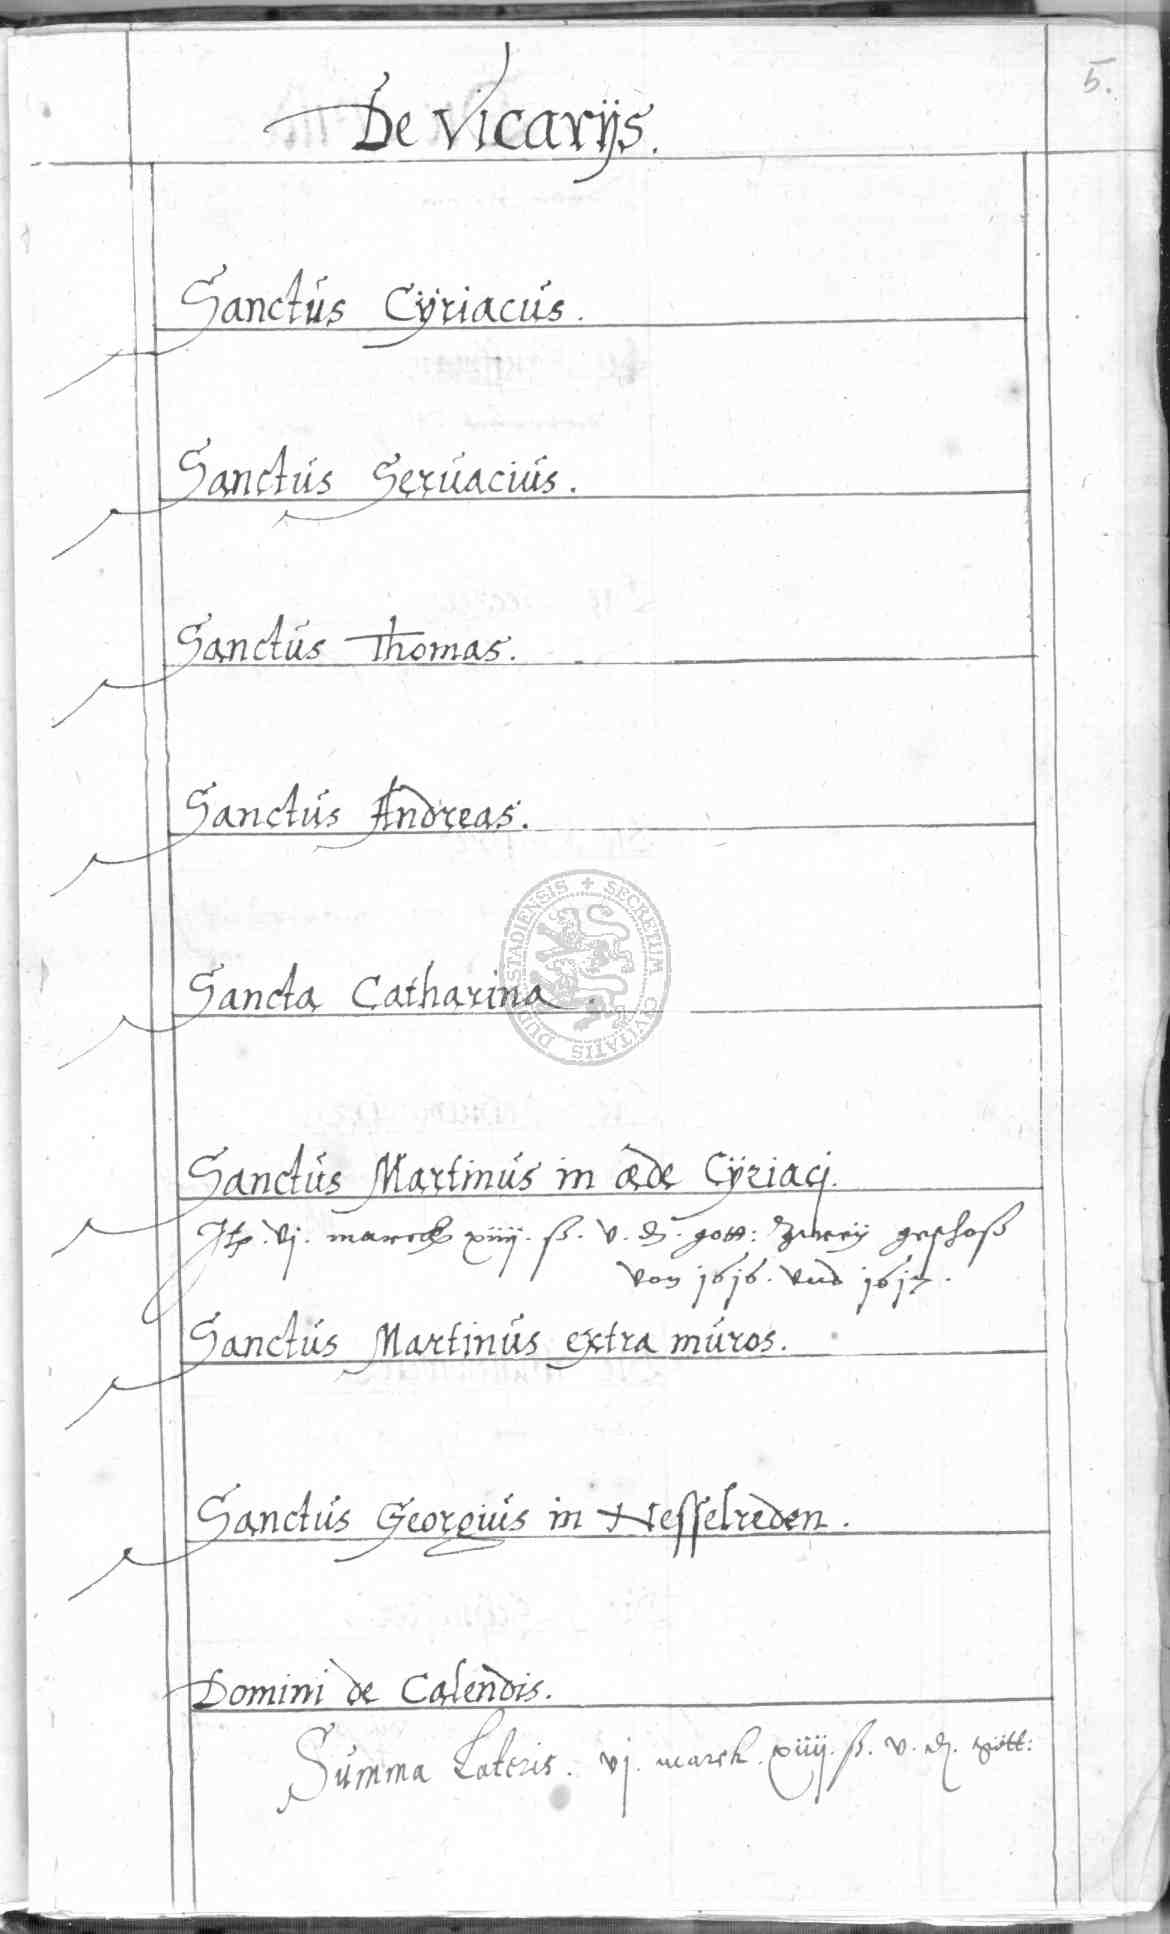 5.
De Vicarijs.
Sanctus Cÿriacus.
Sanctus Seruacius.
Sanctus Thomas.
Sanctus Andreas.
Sancta Catharina.
Sanctus Martinus in æde Cÿriacj.
Itē. vj. marck xiiij. ß. v. ₰. gott: Zweÿ geschoß
von 1616. vnd 1617.
Sanctus Martinus extra muros.
Sanctus Georgius in Nesselreden.
Domini de Calendis.
Summa Lateris. vj. marck. xiiij. ß. v. ₰. gött:
SECRETUM CIVITATIS DUDERSTADIENSIS